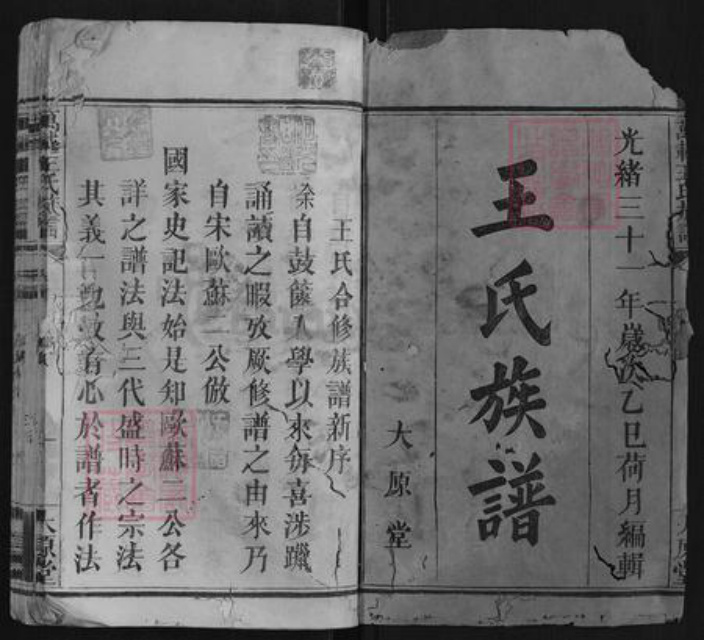 光緒三十一年歲次乙巳荷月編輯
王氏族譜
大原堂
王氏合修族譜新序
余自鼓篋入學以來每喜涉躐
誦讀之暇攷厥修譜之由來乃
自宋歐蘇二公倣
國家史記法始是知歐蘇二公各
詳之譜法與三代盛時之宗法
其義一也故有心於譜者作法
大原堂